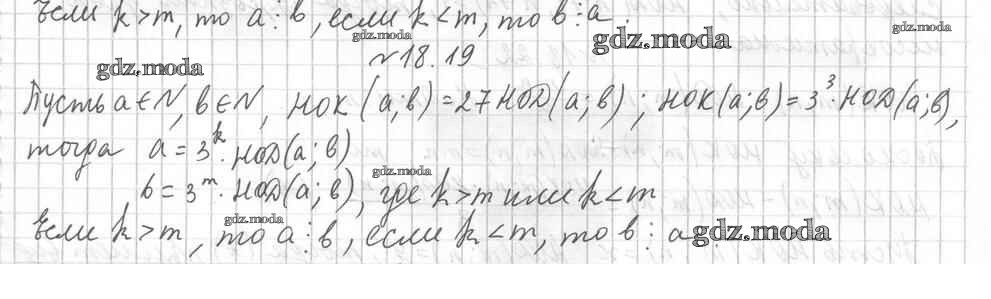 Если k > m, то a ⋮ в, если k < m, то в ⋮ a.
gdz.moda gdz.moda gdz.moda
№18.19
gdz.moda
Пусть a ∈ N, в ∈ N, НОК(a; в) = 27 НОД(a; в); НОК(a; в) = 3³ · НОД(a; в),
тогда a = 3ᵏ · НОД(a; в)
gdz.moda
в = 3ᵐ · НОД(a; в), где k > m или k < m
gdz.moda
Если k > m, то a ⋮ в, если k < m, то в ⋮ a gdz.moda